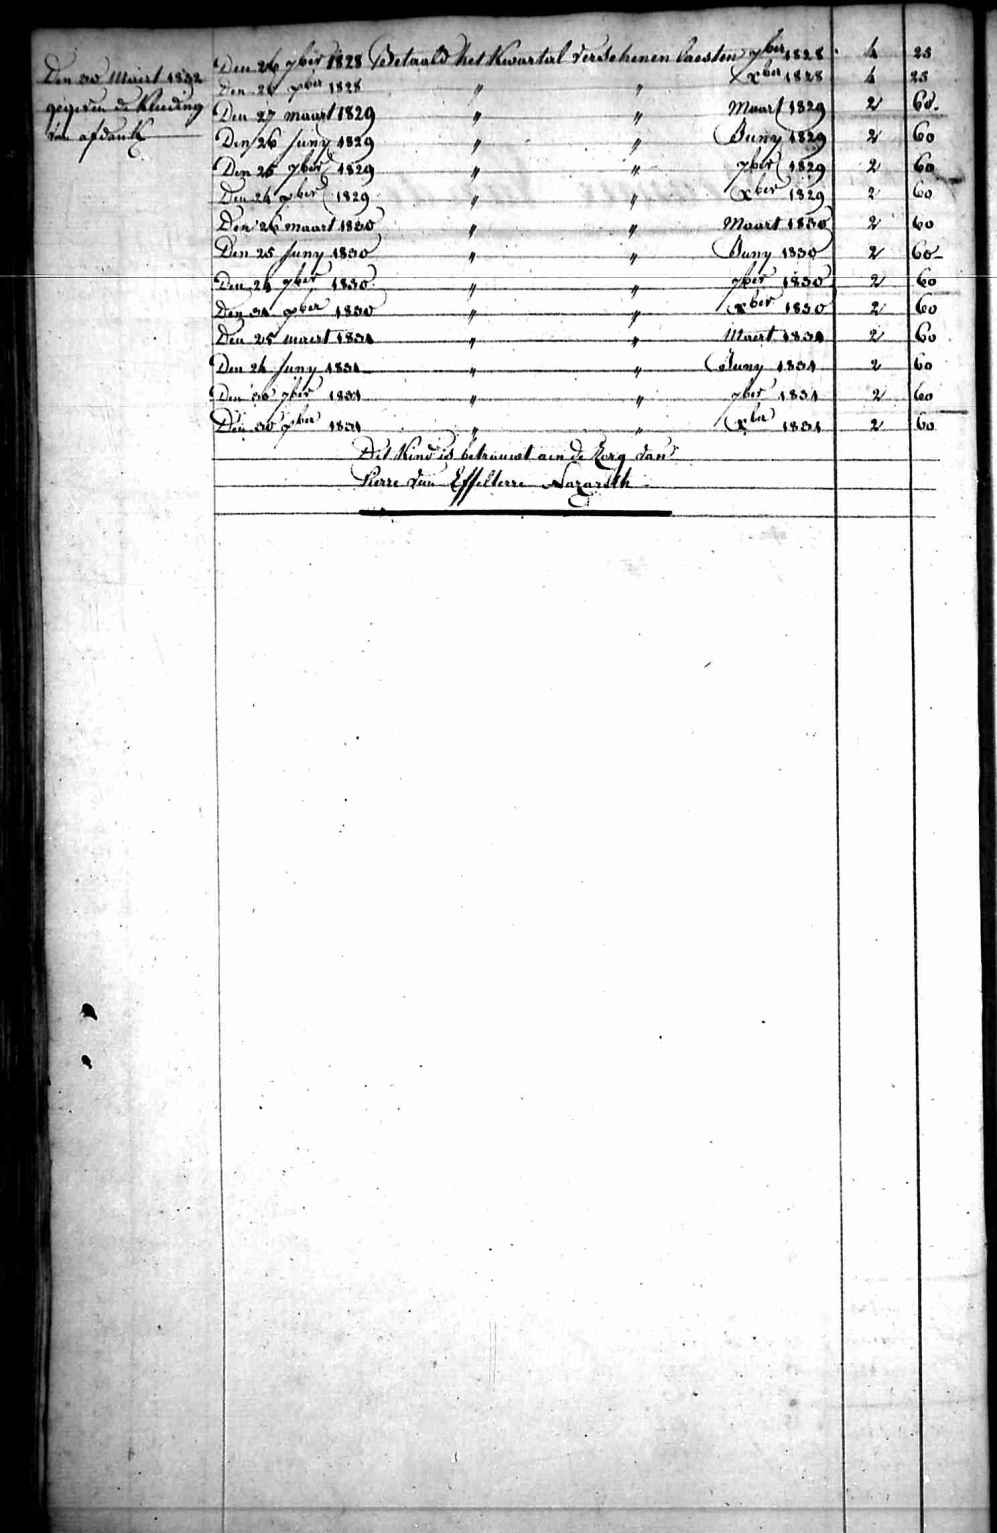 Den 30 Maert 1832
gegeven de Kleeding
van afdank
Den 26 7ber 1828 Betaald het Kwartal verschenen laesten 7ber 1828 4 25
Den 24 xber 1828 " " Xber 1828 4 25
Den 27 maart 1829 " " Maart 1829 2 60
Den 26 Juny 1829 " " Juny 1829 2 60
Den 25 7ber 1829 " " 7ber 1829 2 60
Den 24 xber 1829 " " Xber 1829 2 60
Den 26 maart 1830 " " Maart 1830 2 60
Den 25 Juny 1830 " " Juny 1830 2 60
Den 24 7ber 1830 " " 7ber 1830 2 60
Den 31 xber 1830 " " Xber 1830 2 60
Den 25 maert 1831 " " Maert 1831 2 60
Den 24 Juny 1831 " " Juny 1831 2 60
Den 30 7ber 1831 " " 7ber 1831 2 60
Den 30 xber 1831 " " Xber 1831 2 60
Dit Kind is betrouwt aen de Zorg van
Pierre Van Effelterre Nazareth